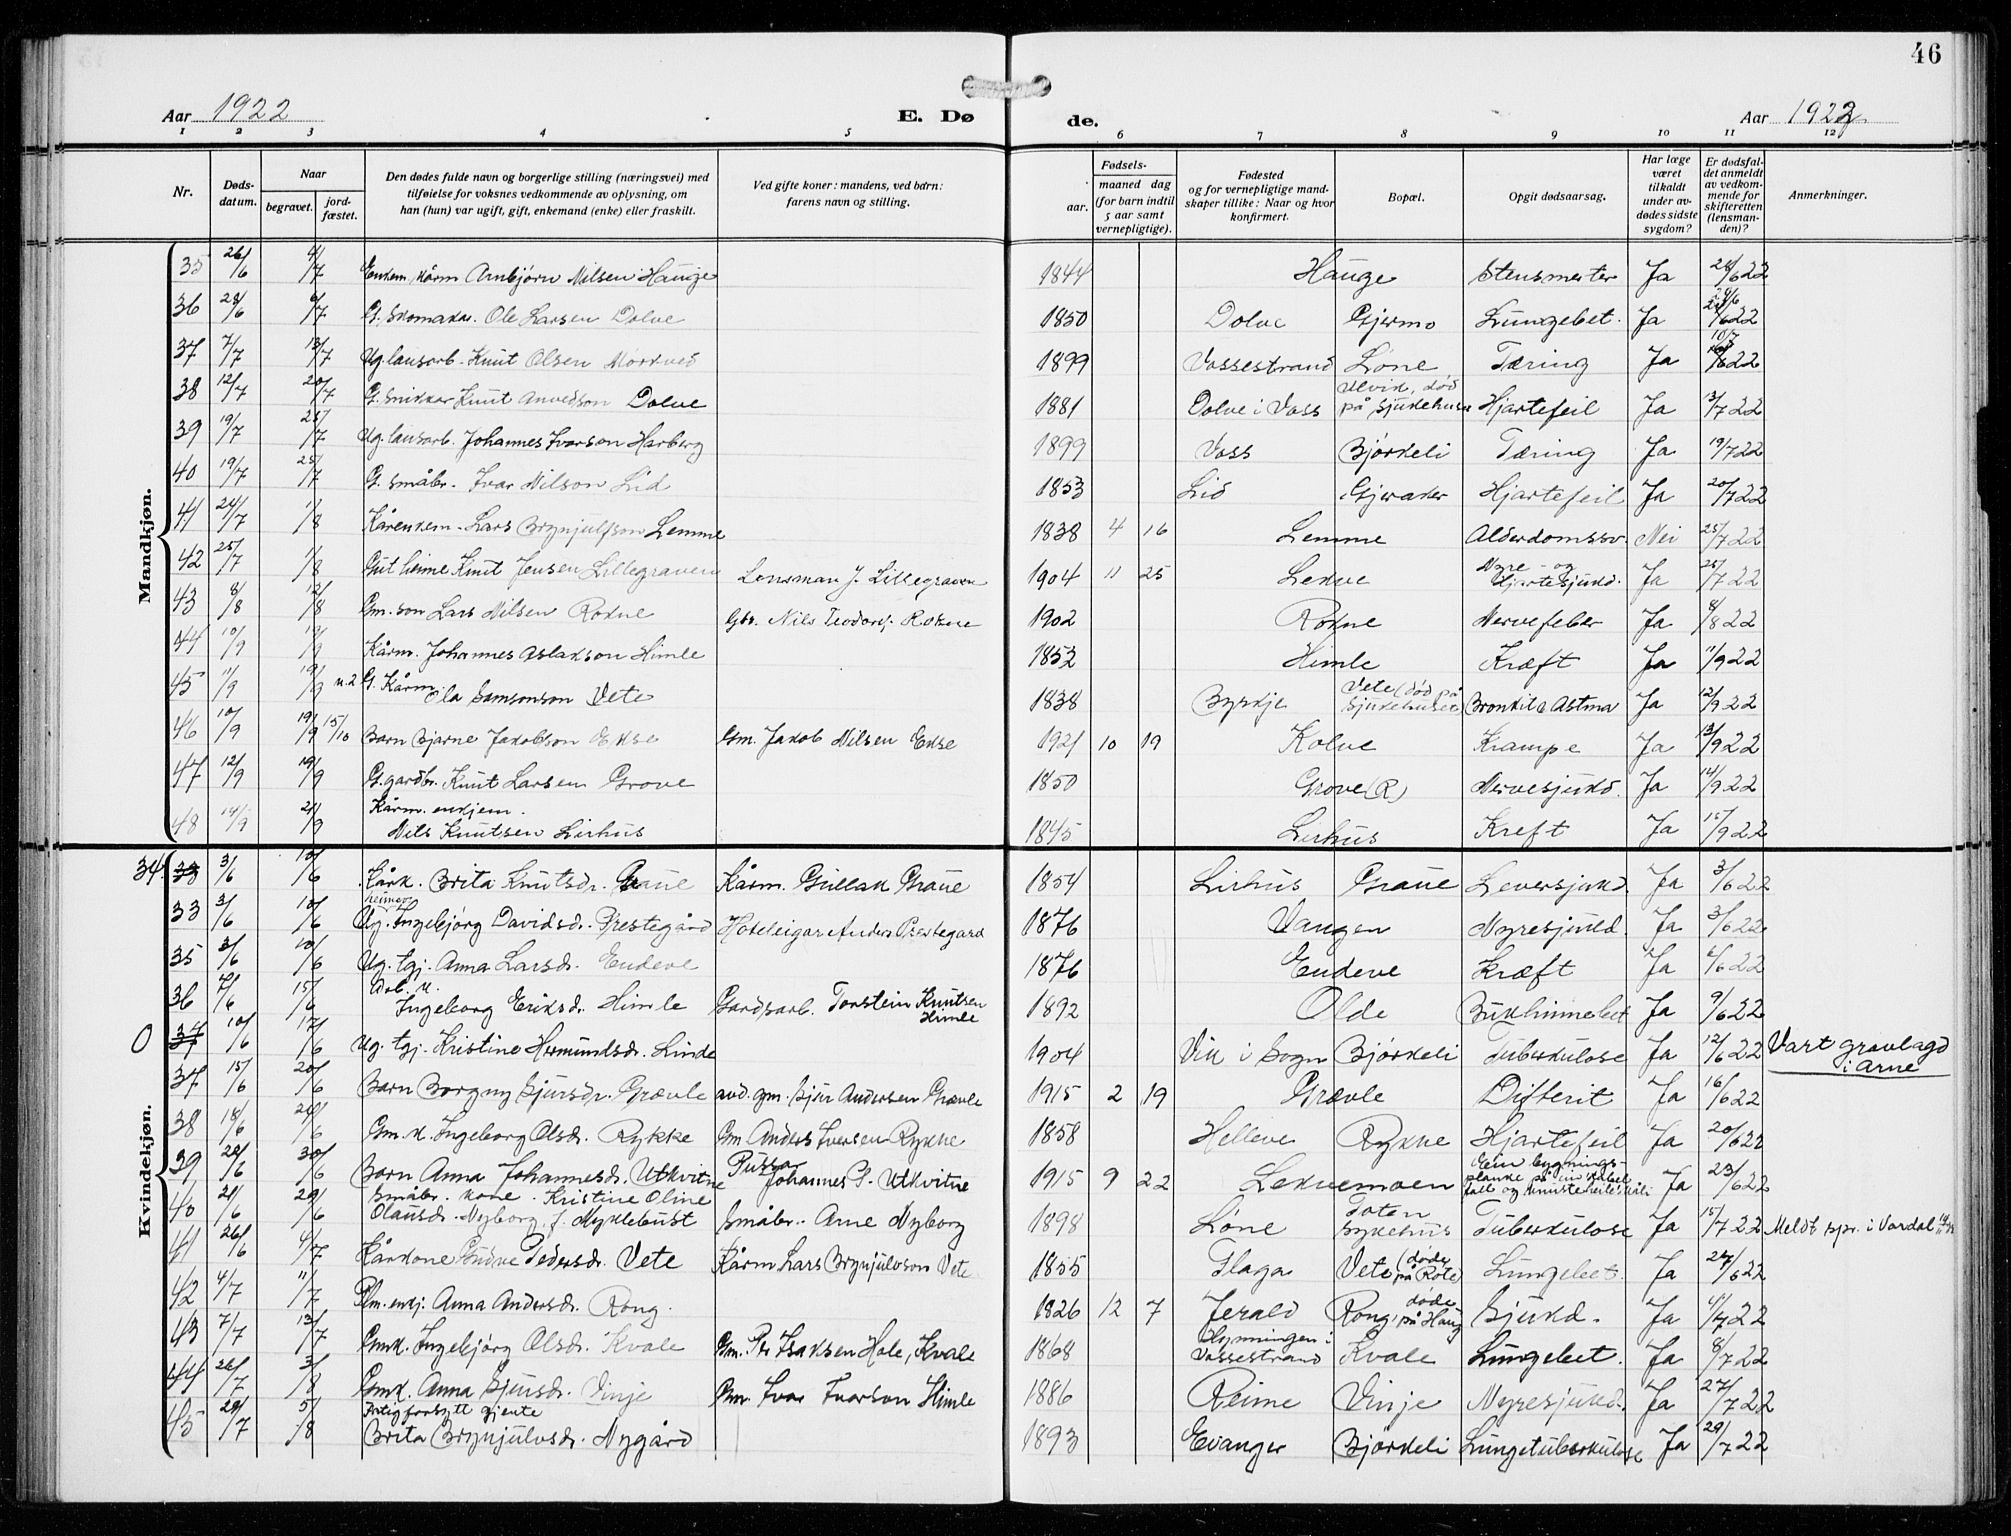 46
Aar 1922 E. Dø de. Aar 1922
1 2 3 4 5 6 7 8 9 10 11 12
Nr. Døds-datum. Naar begravet. jord-fæstet. Den dødes fulde navn og borgerlige stilling (næringsvei) med tilføielse for voksnes vedkommende av oplysning, om han (hun) var ugift, gift, enkemand (enke) eller fraskilt. Ved gifte koner: mandens, ved børn: farens navn og stilling. Fødsels- aar. maaned dag (for barn indtil 5 aar samt vernepligtige). Fødested og for vernepligtige mandskaper tillike: Naar og hvor konfirmert. Bopæl. Opgit dødsaarsag. Har læge været tilkaldt under avdødes sidste sygdom? Er dødsfaldet anmeldt av vedkommende for skifteretten (lensmanden)? Anmerkninger.
Mandkjøn.
35 26/6 4/7 Enkem. kårm Arnbjørn Nilsen Hauge 1844 Hauge Stensmerter Ja 28/6 22
36 28/6 6/7 G. Skomakar. Ole Larsen Dolve 1850 Dolve Gjermo Lungebet. Ja 29/6 22
37 7/7 13/7 Ug. lausarb. Knut Olsen Mørkved 1899 Vossestrand Løne Tæring Ja 10/7 22
38 12/7 20/7 G. Snikkar Knut Anvedson Dolve 1881 Dolve i Voss Ulvik, død på sjukehuse Hjartefeil Ja 13/7 22
39 19/7 25/7 Ug. lausarb. Johannes Ivarson Harberg 1899 Voss Bjørkeli Tæring Ja 19/7 22
40 19/7 25/7 G. småbr. Ivar Nilson Lid 1853 Lid Gjeraker Hjartefeil Ja 20/7 22
41 24/7 1/8 Kårenkem. Lars Brynjulfson Lemme 1838 4 16 Lemme Alderdomssv. Nei 25/7 22
42 25/7 1/8 Gut heime Knut Jensen Lillegraven Lensman J. Lillegraven 1904 11 25 Lekve Nyre- og Hjartesjukd. Ja 25/7 22
43 8/8 12/8 Gm. son Lars Nilsen Rokne Gbr. Nils Teodorsj. Rokne 1902 Rokne Nervefeber Ja 8/8 22
44 10/9 19/9 Kårm. Johannes Aslakson Himle 1852 Himle Kræft Ja 11/9 22
45 11/9 19/9 n.2 G. Kårm. Ola Samsonson Vete 1838 Byrkje Vete (død på sjukehuset) Bronkit & Astma Ja 12/9 22
46 10/9 19/9 15/10 Barn Bjarne Jakobson Ekse Gm. Jakob Nilsen Ekse 1921 10 19 Kolve Krampe Ja 13/9 22
47 12/9 19/9 G. gardbr. Knut Larsen Grove 1850 Grove (R) Nervesjukd. Ja 14/9 22
48 14/9 21/9 Kårm. enkjem. Nils Knutsen Lirhus 1845 Lirhus Kreft Ja 15/9 22
Kvindekjøn.
34. 33 3/6 10/6 Kårk. Brita Knutsdr. Graue Kårm. Gullak Graue 1854 Lirhus Graue Leversjukd. Ja 3/6 22
33 3/6 10/6 Ug. heimev. Ingebjørg Davidsdr. Prestegård Hoteleigar Anders Prestegard 1876 Vangen Nyresjukd. Ja 3/6 22
35 3/6 10/6 Ug. tgj. Anna Larsdr. Endeve 1876 Endeve Kræft Ja 6/6 22
36 7/6 15/6 Arb. k. Ingeborg Eriksdr. Himle Gardsarb. Torstein Knutsen Himle 1892 Olde Bukhinnebet Ja 9/6 22
0 37 10/6 17/6 Ug. tgj. Kristine Hermundsdr. Linde 1904 Vik i Sogn Bjørkeli Tuberkulose Ja 12/6 22 Vart gravlagd i Arne
37 15/6 20/6 Barn Borgny Sjursdr. Grævle avd. gm. Sjur Andersen Grævle 1915 2 19 Grævle Difterit Ja 16/6 22
38 18/6 26/6 Gm. k. Ingeborg Olsdr. Rykke Gm Anders Iversen Rykne 1858 Helleve Rykne Hjartefeil Ja 20/6 22
39 20/6 30/6 Barn Anna Johannesdr. Utkvitne Pussar Johannes P. Utkvitne 1915 9 22 Lekvemoen Ein bygningsplanke på ein stabel fall og knuste Ja 23/6 22
40 21/6 29/6 Småbr. kone. Kristine Oline Olausdr. Nyborg f. Myklebust Småbr. Arne Nyborg 1898 Løne Toten sykehus Tuberkulose Ja 15/7 22 Meldt spr. i Vardal
41 26/6 4/7 Kårkone Gudve Pedersdr. Vete Kårm Lars Brynjulvson Vete 1855 Flaga Vete (døde på Rote) Lungebet. Ja 27/6 22
42 4/7 11/7 Plm. enkj. Anna Andersdr. Rong. 1826 12 7 Jerald Rong, døde på Haug Sjukd. Ja 4/7 22
43 7/7 13/7 Gmk. Ingebjørg Olsdr. Kvale Gm. Per Isaksen Hole, Kvale 1868 Klypningen i Vossestrand Kvale Lungebet. Ja 8/7 22
44 26/7 3/8 Gmk. Anna Sjursdr. Vinje Gm. Ivar Ivarson Himle 1886 Reime Vinje Nyresjukd. Ja 27/7 22
45 29/7 5/8 Fatigforsytt gjente Brita Brynjulvsdr. Nygård 1893 Evanger Bjørkeli Lungetuberkulose Ja 29/7 22